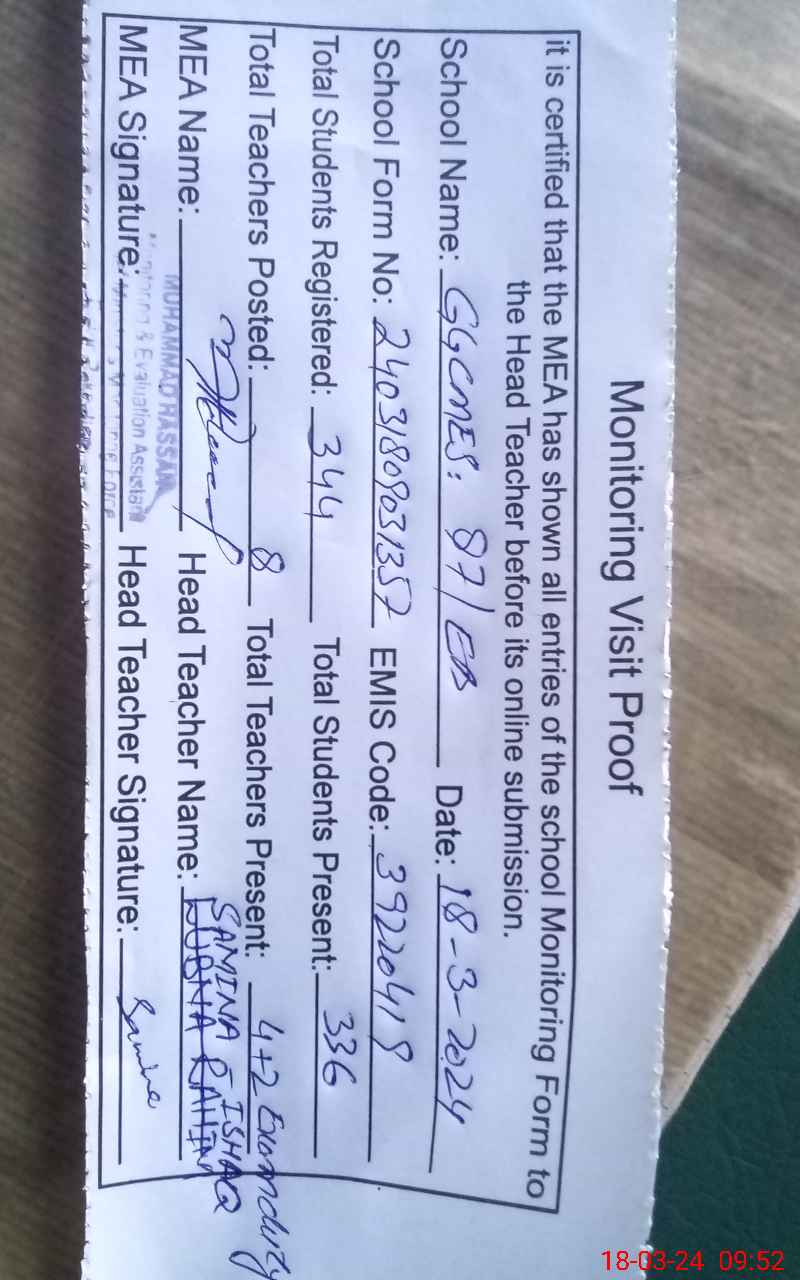 Monitoring Visit Proof
it is certified that the MEA has shown all entries of the school Monitoring Form to
the Head Teacher before its online submission.
School Name: GGCMES: 87/EB Date: 18-3-2024
School Form No: 24031809031357 EMIS Code: 39220419
Total Students Registered: 344 Total Students Present: 336
Total Teachers Posted: 8 Total Teachers Present: 4+2 Exam duty
SAMINA ISHAQ
MEA Name: Head Teacher Name: LUBNA RAHIM
MUHAMMAD HASSAN
Monitoring & Evaluation Assistant
MEA Signature: Head Teacher Signature: Samina
Force
18-03-24 09:52